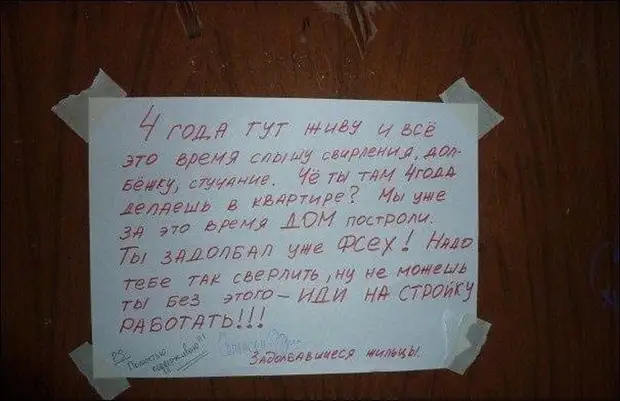 4 ГОДА ТУТ ЖИВУ И ВСЁ
ЭТО ВРЕМЯ СЛЫШУ СВИРЛЕНИЯ, ДОЛ-
БЁЖКУ, СТУЧАНИЕ. ЧЁ ТЫ ТАМ 4ГОДА
ДЕЛАЕШЬ В КВАРТИРЕ? МЫ УЖЕ
ЗА ЭТО ВРЕМЯ ДОМ ПОСТРОЛИ.
ТЫ ЗАДОЛБАЛ УЖЕ ФСЕХ! НАДО
ТЕБЕ ТАК СВЕРЛИТЬ, НУ НЕ МОЖЕШЬ
ТЫ БЕЗ ЭТОГО – ИДИ НА СТРОЙКУ
РАБОТАТЬ!!!
PS Полностью
поддерживаю!!!
ЗАДОЛБАВШИЕСЯ ЖИЛЬЦЫ.